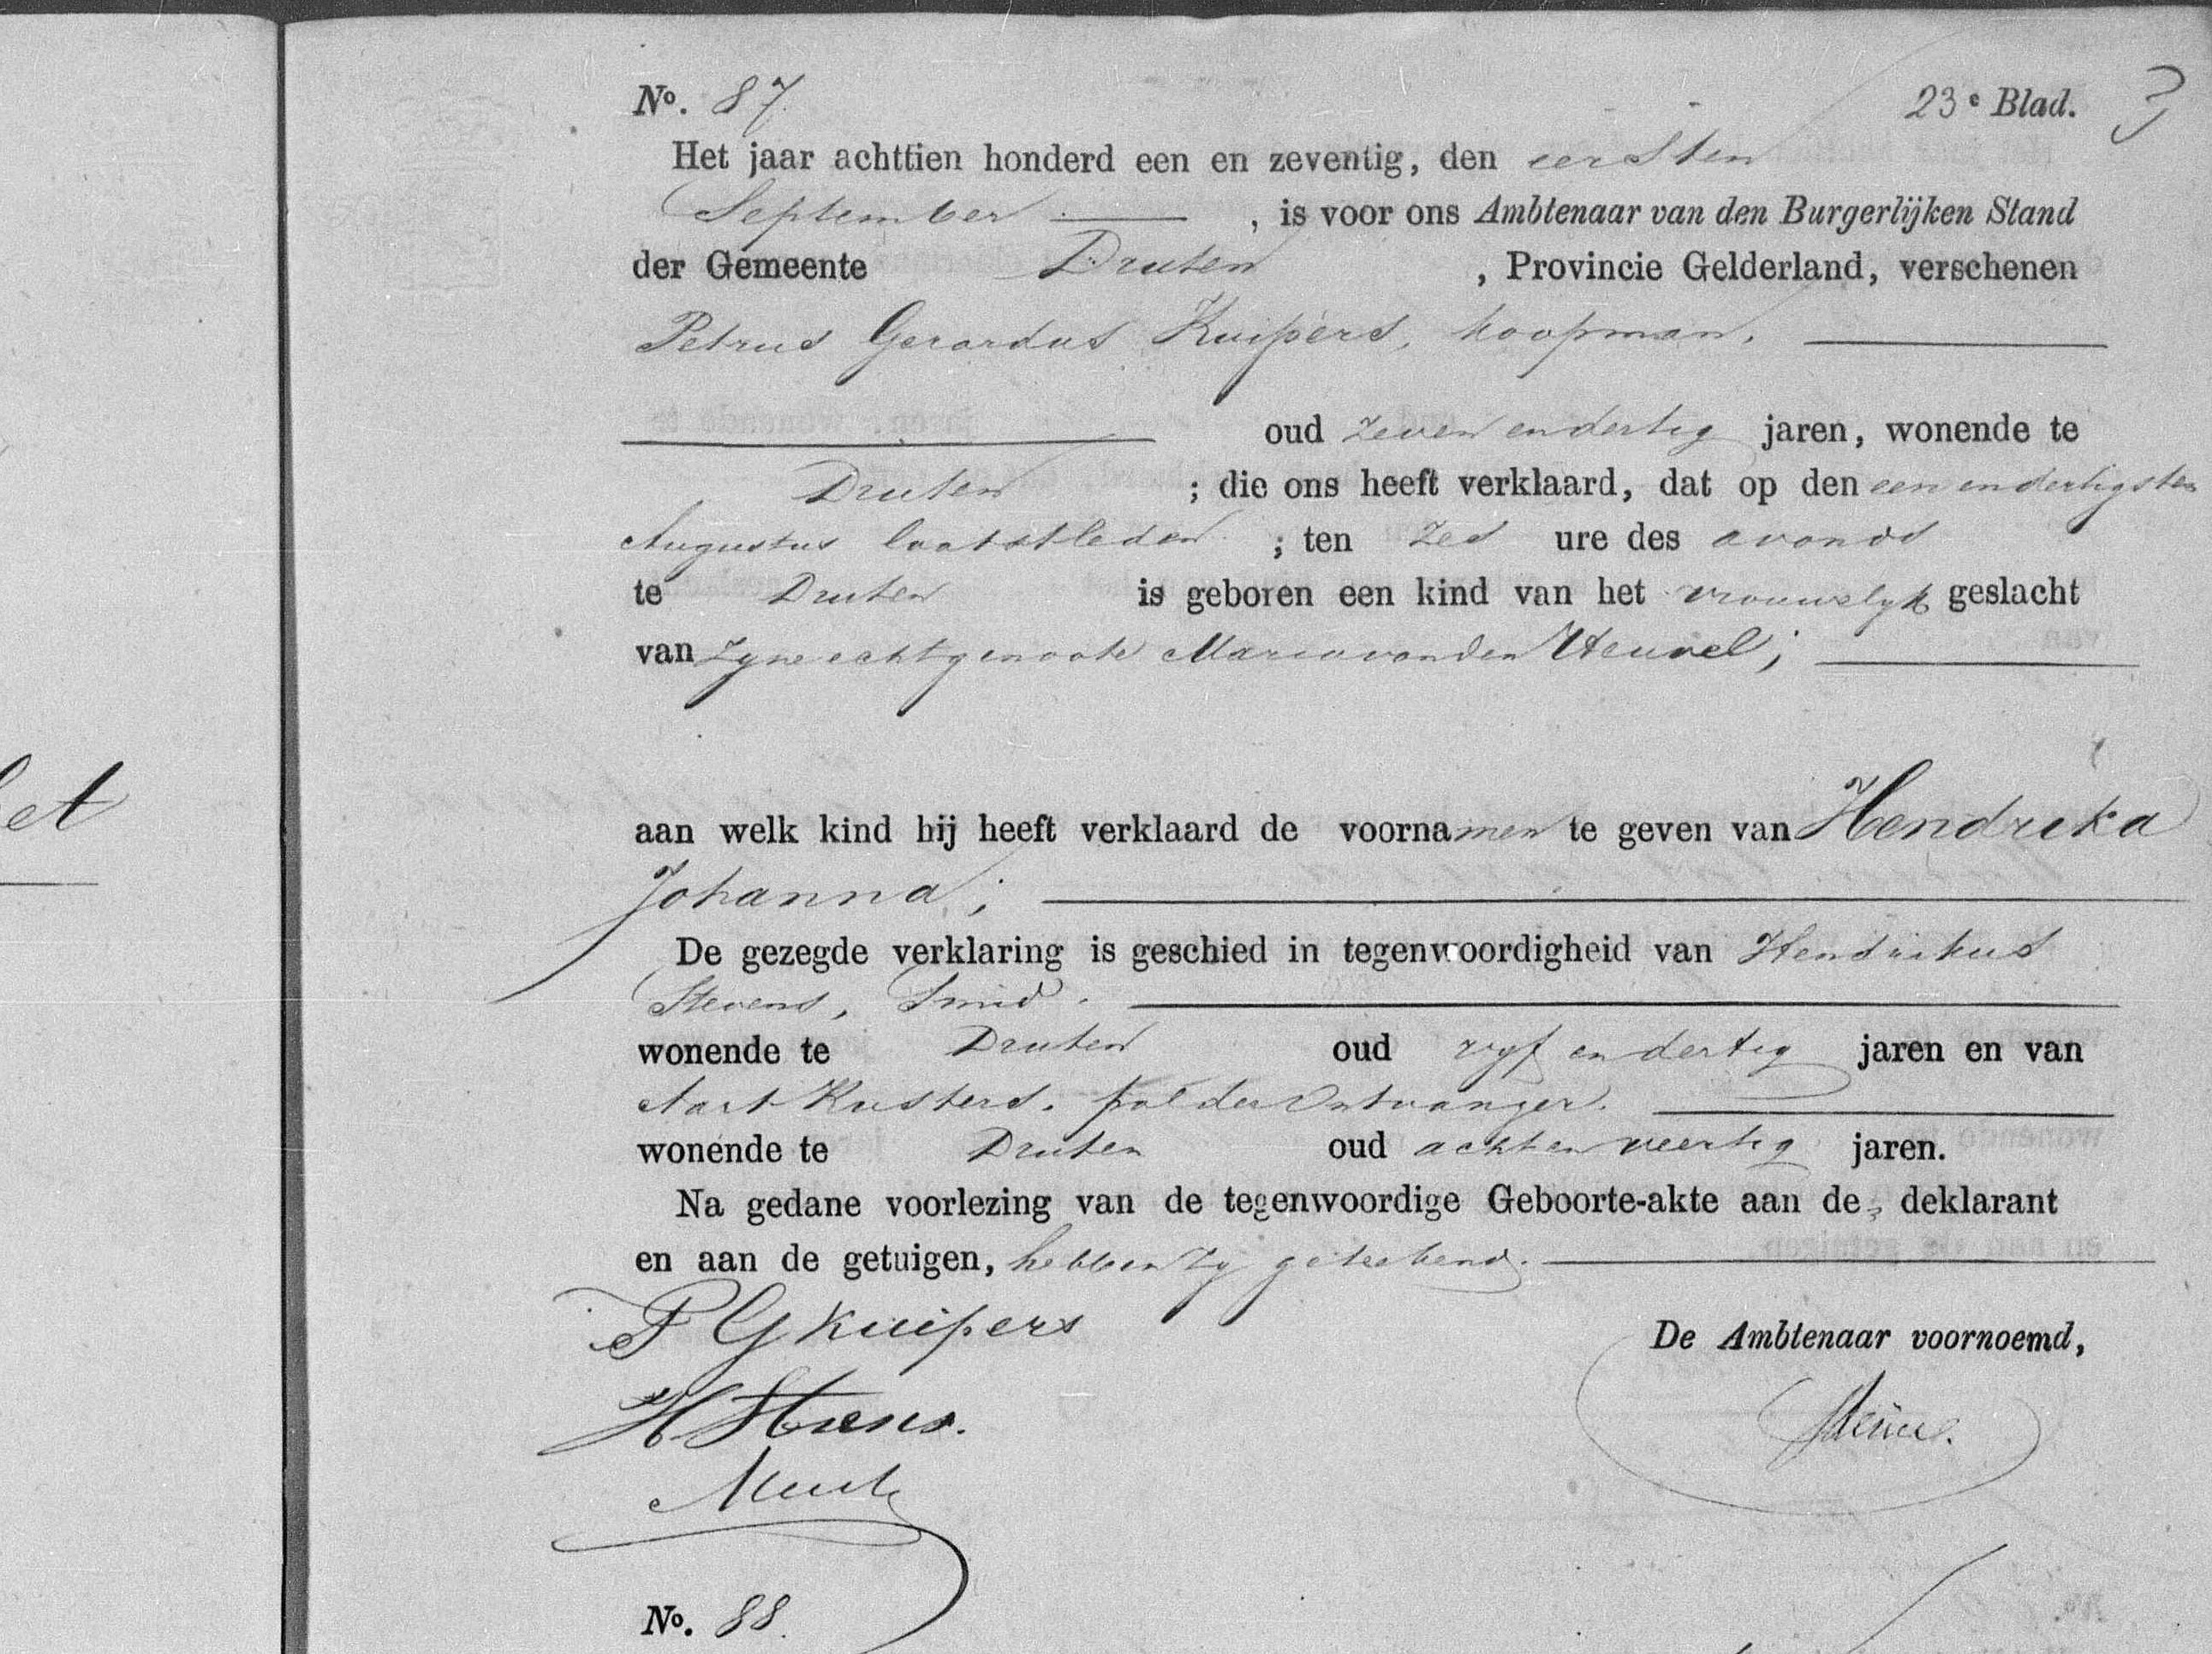 No. 87. 23e Blad.
Het jaar achttien honderd een en zeventig, den eersten
September , is voor ons Ambtenaar van den Burgerlijken Stand
der Gemeente Druten , Provincie Gelderland, verschenen
Petrus Gerardus Kuipers, koopman.
oud zeven en dertig jaren, wonende te
Druten ; die ons heeft verklaard, dat op den een en dertigsten
Augustus laatstleden ; ten zes ure des avonds
te Druten is geboren een kind van het vrouwelyk geslacht
van zyne echtgenoote Maria van den Heuvel;
aan welk kind hij heeft verklaard de voornamen te geven van Hendrika
Johanna;
De gezegde verklaring is geschied in tegenwoordigheid van Hendrikus
Stevens, Smid.
wonende te Druten oud vyf en dertig jaren en van
Aart Kusters. polder Ontvanger.
wonende te Druten oud acht en veertig jaren.
Na gedane voorlezing van de tegenwoordige Geboorte-akte aan de deklarant
en aan de getuigen, hebben zy geteekend.
P G Kuipers
De Ambtenaar voornoemd,
H Stevens.
No. 88.
et